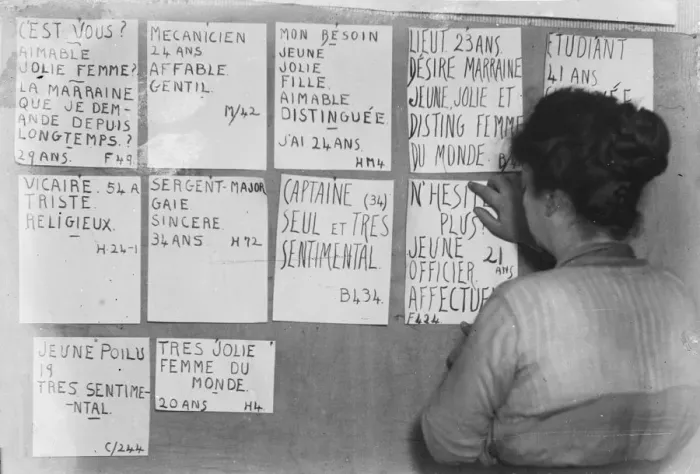 C'EST VOUS?
AIMABLE
JOLIE FEMME?
LA MARRAINE
QUE JE DEM-
ANDE DEPUIS
LONGTEMPS.?
29 ANS. F49
MECANICIEN
24 ANS
AFFABLE.
GENTIL.
M/42
MON BESOIN
JEUNE
JOLIE
FILLE.
AIMABLE
DISTINGUÉE.
J'AI 24 ANS.
HM4
LIEUT. 23 ANS.
DÉSIRE MARRAINE
JEUNE, JOLIE ET
DISTING FEMME
DU MONDE.
ETUDIANT
41 ANS
VICAIRE. 54 A
TRISTE.
RELIGIEUX.
H.24-1
SERGENT-MAJOR
GAIE
SINCERE.
34 ANS. H72
CAPTAINE (34)
SEUL ET TRES
SENTIMENTAL.
B434.
PLUS?
JEUNE 21
OFFICIER. ANS
F424
JEUNE POILU
19
TRES SENTIME-
-NTAL.
C/244
TRES JOLIE
FEMME DU
MONDE.
20 ANS H4